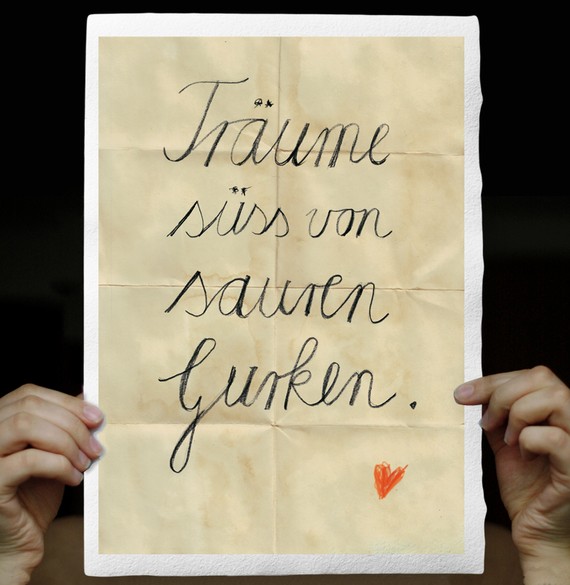 Träume
süss von
sauren
Gurken.